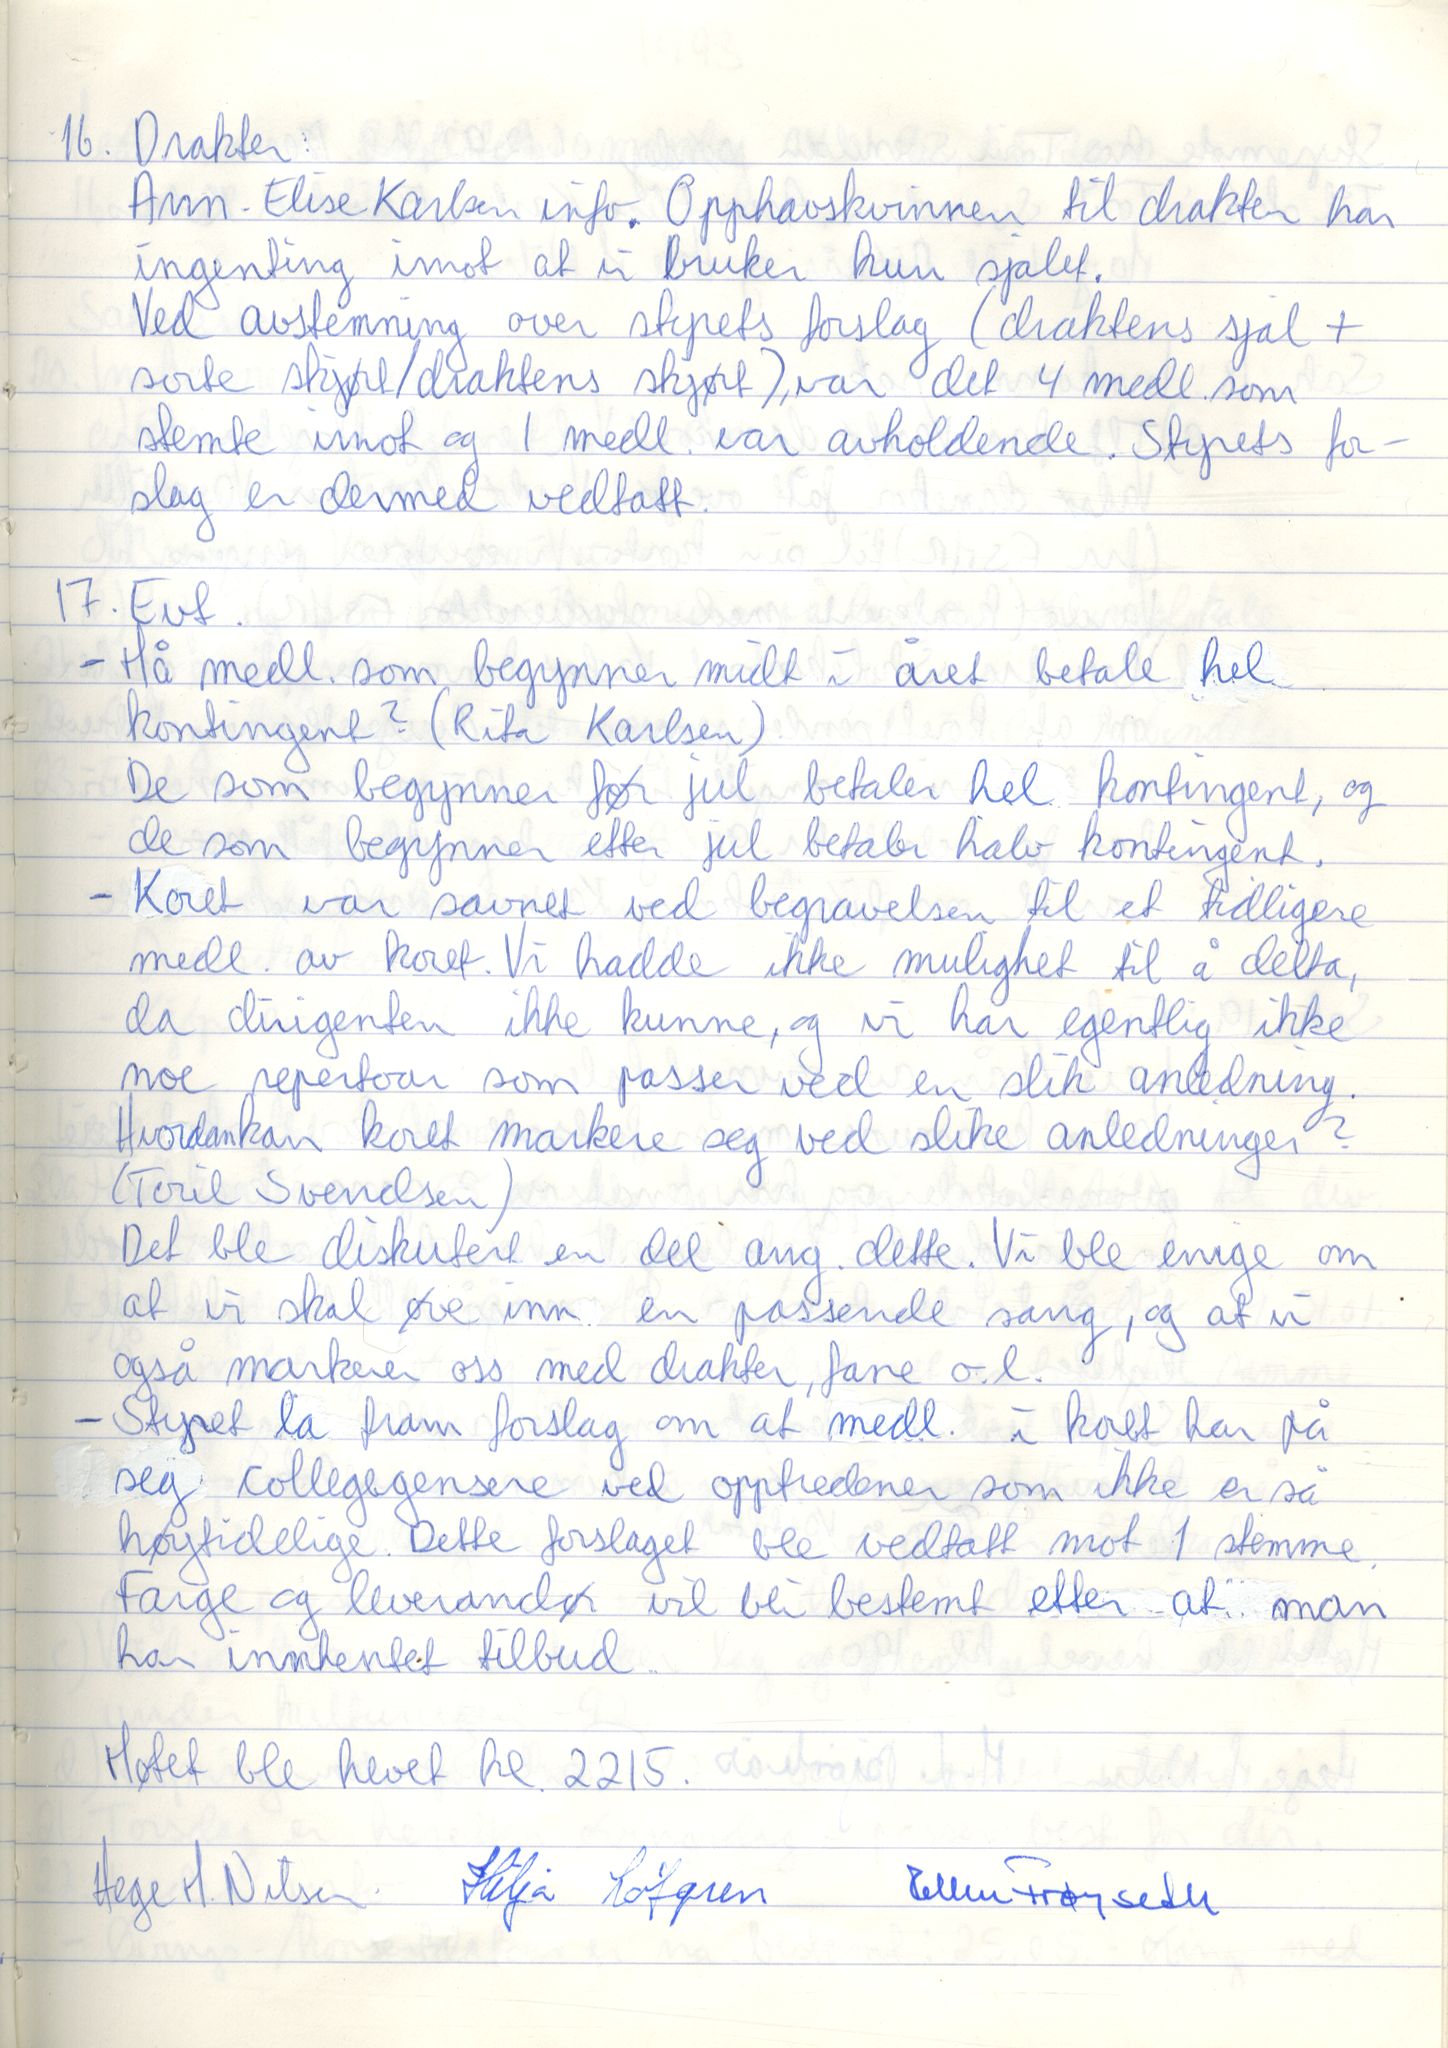 16. Drakter:
Ann-Elise Karlsen info. Opphavskvinnen til drakten har
ingenting imot at vi bruker kun sjalet.
Ved avstemning over styrets forslag (draktens sjal +
sorte skjørt/draktens skjørt), var det 4 medl. som
stemte imot og 1 medl. var avholdende. Styrets for-
slag er dermed vedtatt.
17. Evt.
- Må medl. som begynner midt i året betale hel
kontingent? (Rita Karlsen)
De som begynner før jul betaler hel kontingent, og
de som begynner etter jul betaler halv kontingent.
- Koret var savnet ved begravelsen til et tidligere
medl. av koret. Vi hadde ikke mulighet til å delta,
da dirigenten ikke kunne, og vi har egentlig ikke
noe repertoar som passer ved en slik anledning.
Hvordan kan koret markere seg ved slike anledninger?
(Toril Svendsen)
Det ble diskutert en del ang. dette. Vi ble enige om
at vi skal øve inn en passende sang, og at vi
også markerer oss med drakter, fane o.l.
- Styret la fram forslag om at medl. i koret har på
seg collegegensere ved opptredener som ikke er så
høytidelige. Dette forslaget ble vedtatt mot 1 stemme.
Farge og leverandør vil bli bestemt etter at man
har innhentet tilbud.
Møtet ble hevet kl. 2215.
Hege M. Nilsen. Silja Løfgren Ellen Frøyseth